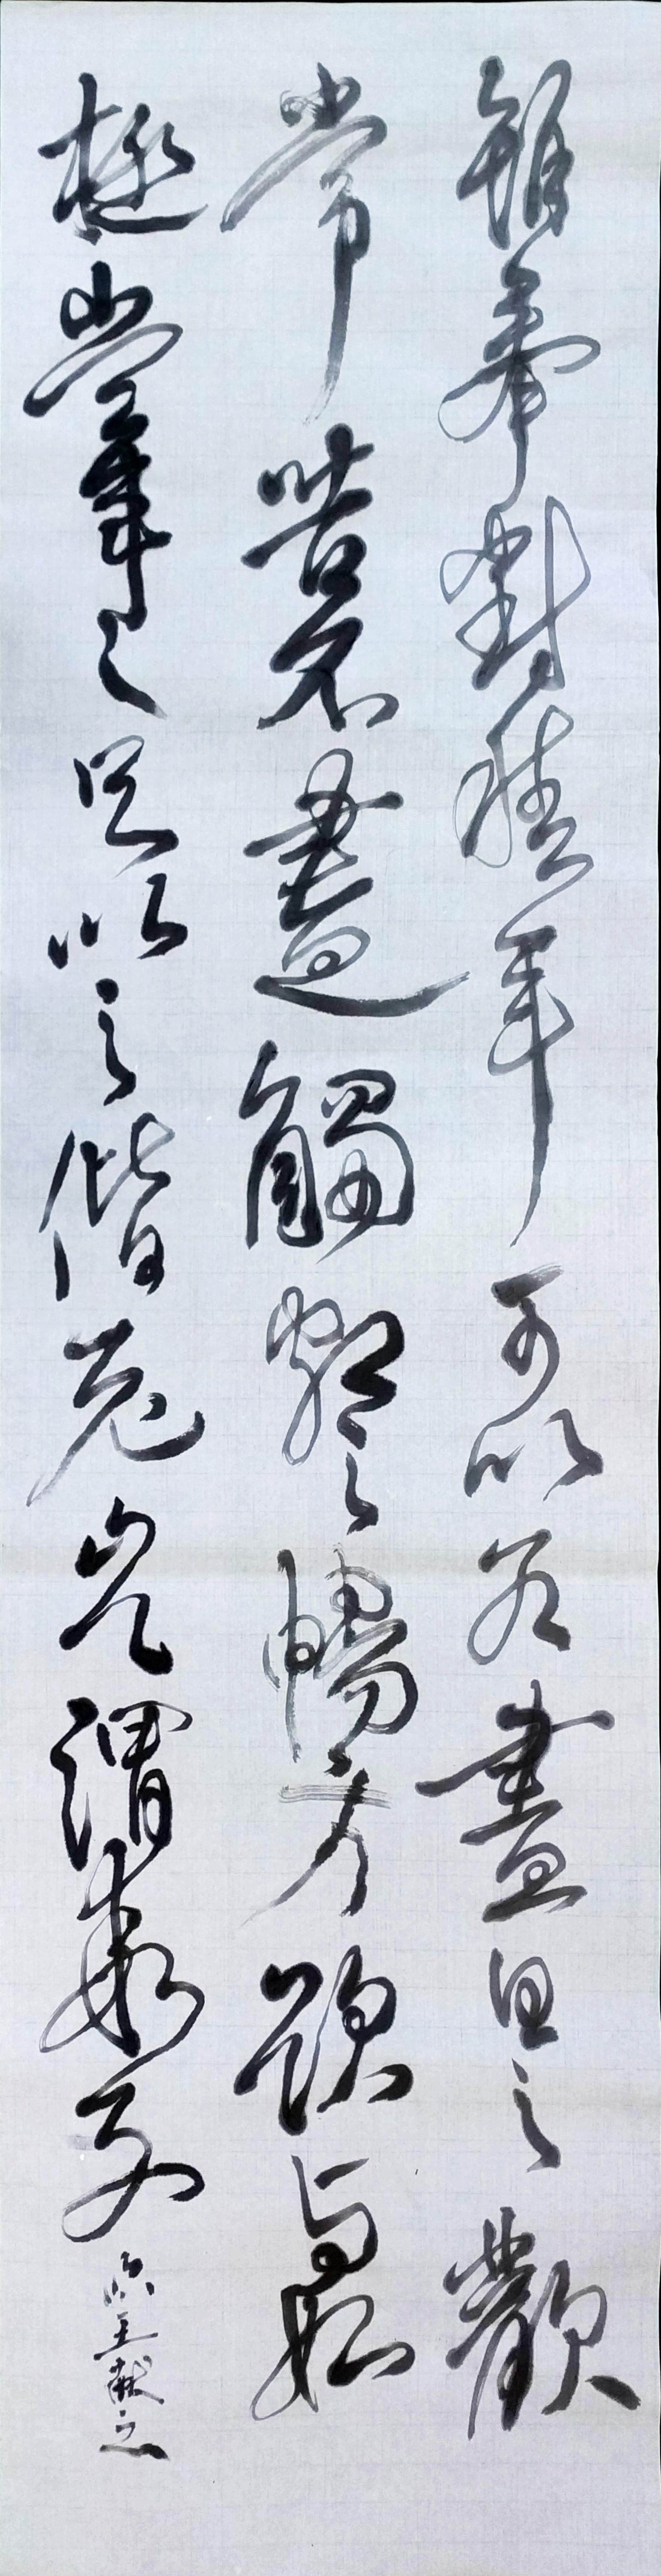 雖奉對積年可以為盡日之歡
常苦不盡觸額之暢方欲與姊
極當年之足以之偕老豈謂乖別
臨王獻之